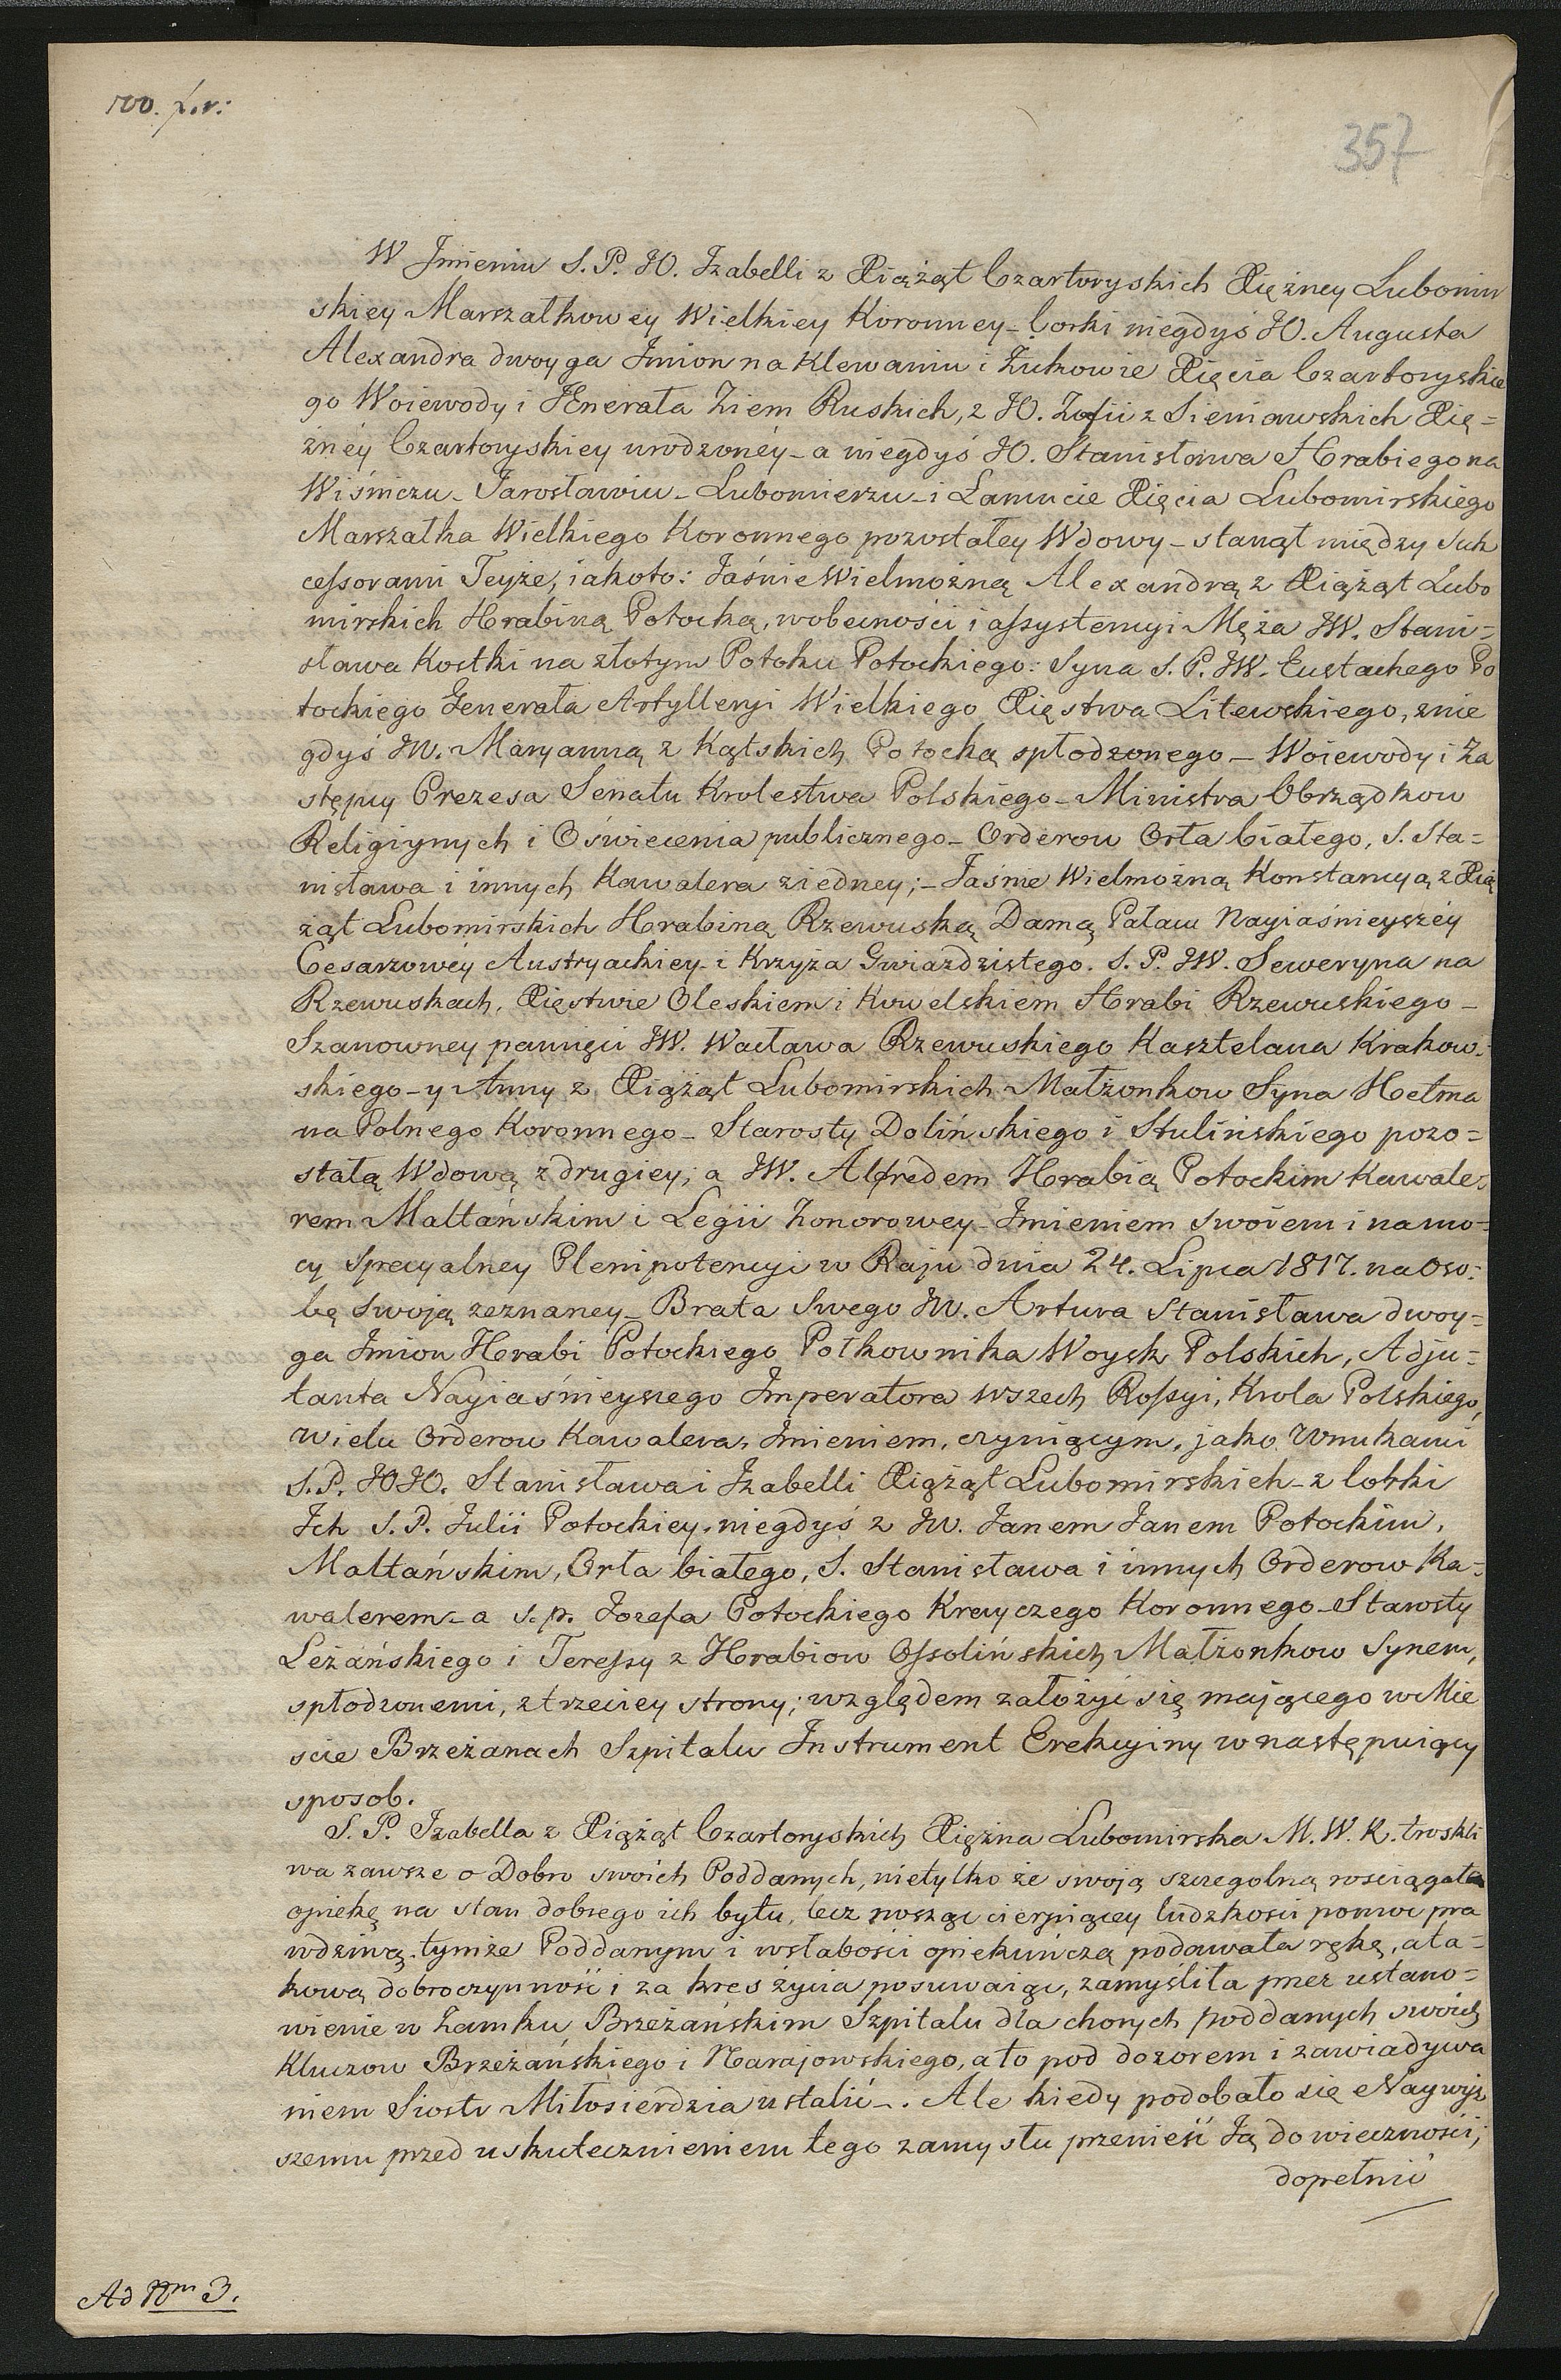 357
W Jmieniu S. P. JO. Jzabelli z Xiążąt Czartoryskich Xiężney Lubomir
skiey Marszałkowey Wielkiey Koronney - Corki niegdyś JO. Augusta
Alexandra dwoyga Jmion na Klewaniu i Żukowie Xięcia Czartoryskie
go Woiewody i JEnerała Ziem Ruskich, z JO. Zofii z Sieniawskich Xię=
żnéy Czartoryskiey urodzonéy - a niegdyś JO. Stanisława Hrabiego na
Wiśniczu - Jarosławiu - Lubomierzu - i Łancucie Xięcia Lubomirskiego
Marszałka Wielkiego Koronnego pozostałey Wdowy - stanął między Suk
cessorami Teyże, iakoto: Jaśnie Wielmożną Alexandrą z Xiążąt Lubo
mirskich Hrabiną Potocką, wobecności i assystencyi Męża JW. Stani=
sława Kostki na złotym Potoku Potockiego: Syna S. P. JW. Eustachego Po
tockiego Generała Artylleryi Wielkiego Xięstwa Litewskiego, znie
gdyś JW. Maryanną z Kątskich Potocką spłodzonego - Woiewody i Za
stępcy Prezesa Senatu Krolestwa Polskiego - Ministra Obrządkow
Religiynych i Oświecenia publicznego - Orderow Orła białego, S. Sta=
nisława i innych Kawalera ziedney; - Jaśnie Wielmożną Konstancyą z Xią
żąt Lubomirskich Hrabiną Rzewuską Damą Pałacu Nayiaśnieyszéy
Cesarzowéy Austryackiey - i Krzyża Gwiazdzistego. S. P. JW. Seweryna na
Rzewuskach, Xięstwie Oleskiem i Kowelskiem Hrabi Rzewuskiego -
Szanowney pamięci JW. Wacława Rzewuskiego Kasztelana Krakow=
skiego - y Anny z Xiążąt Lubomirskich Małżonkow Syna Hetma
na Polnego Koronnego - Starosty Dolińskiego i Stulińskiego pozo=
stałą Wdową z drugiey; a JW. Alfredem Hrabią Potockim Kawale=
rem Maltańskim i Legii honorowey - Jmieniem swoiem i na mo=
cy specyalney Plenipotencyi w Raju dnia 24. Lipca 1817. na Oso=
bę swoją zeznaney - Brata Swego JW. Artura Stanisława dwoy=
ga Jmion Hrabi Potockiego Połkownika Woysk Polskich, Adju=
tanta Nayiaśnieyszego Jmperatora wszech Rossyi, Krola Polskiego,
wielu Orderow Kawalera, Jmieniem, czyniącym, jako Wnukami
S. P. JOJO. Stanisława i Jzabelli Xiążąt Lubomirskich - z Corki
Jch S. P. Julii Potockiey, niegdyś z JW. Janem Janem Potockim,
Maltańskim, Orła białego, S. Stanisława i innych Orderow Ka=
walerem - a s. p. Jozefa Potockiego Krayczego Koronnego - Starosty
Leżańskiego i Teressy z Hrabiow Ossolińskich Małżonkow Synem,
spłodzonemi, z trzeciey strony; względem założyć się mającego w Mie
scie Brzeżanach Szpitalu Jnstrument Erekcyiny w następuiący
sposob.
S. P. Jzabella z Xiążąt Czartoryskich Xiężna Lubomirska M. W. K. troskli
wa zawsze o Dobro swoich Poddanych, nietylko że swoją szczegolną rosciągała
opiekę na stan dobrego ich bytu, lecz nosząc cierpiącey ludzkości pomoc pra
wdziwą, tymże Poddanym i w słabości opiekuńczą podawała rękę, a ta=
kową dobroczynność i za kres życia posuwaiąc, zamyśliła przez ustano=
wienie w Zamku Brzeżańskim Szpitalu dla chorych poddanych swoich
Kluczow Brzeżańskiego i Narajowskiego, a to pod dozorem i zawiadywa
niem Siostr Miłosierdzia ustalić -. Ale kiedy podobało się Naywyż
szemu przed uskutecznieniem tego zamysłu przenieść Ją do wieczności;
dopełnić
Ad Nm 3.